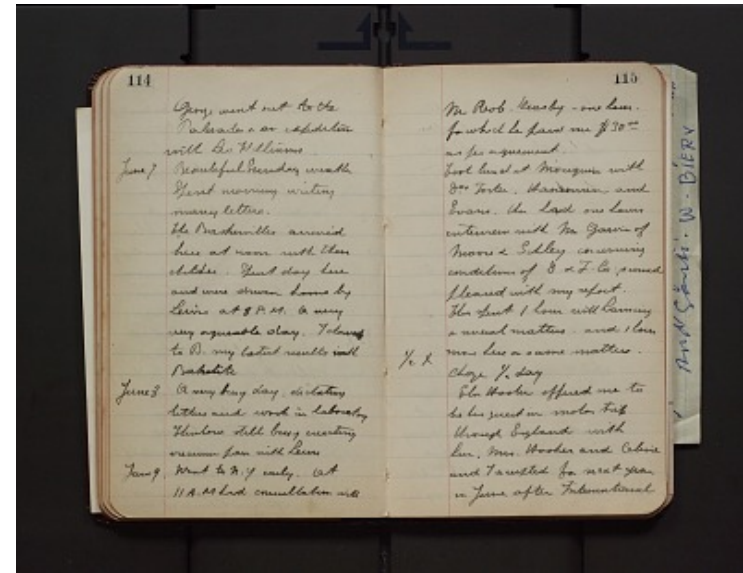 114
George went out to the
Palisades on an expedition
with Dr. Williams
June 7 Beautiful Sunday weath
Spent morning writing
many letters.
The Baskervilles arrived
here at noon with their
children. Spent day here
and were driven home by
Lewis at 8 P.M. A very
very agreeable day. I showed
to B. my latest results with
Bakelite
June 8 A very busy day, dictating
letters and work in laboratory
Thurlow still busy erecting
vacuum pan with Lewis
June 9. Went to N.Y early. At
11 A.M had consultation with
115
Mr Rob. - one hour.
for which he paid me $30 00
as per agreement.
Took lunch at Mouquin with
Drs Foster, and
Evans. Then had one hours
interview with Mr Garvin of
Moore & Schley concerning
conditions of D & F. Co, seemed
pleased with my report.
Then spent 1 hour with
on several matters. and 1 hour
more here on same matters.
1/2 X charge 1/2 day
Eln Hooker offered me to
be his guest on motor trip
through England with
him, Mrs. Hooker and Celine
and I accepted for next year
in June after International
And Göster. W. BIERY